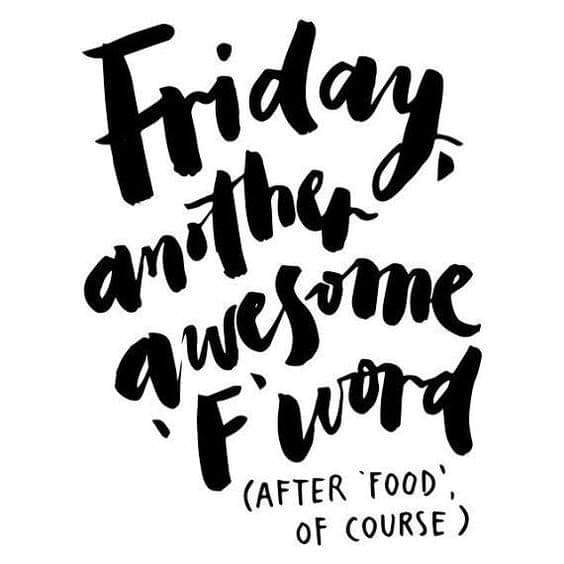 Friday,
another
awesome
'F' word
(AFTER 'FOOD',
OF COURSE)